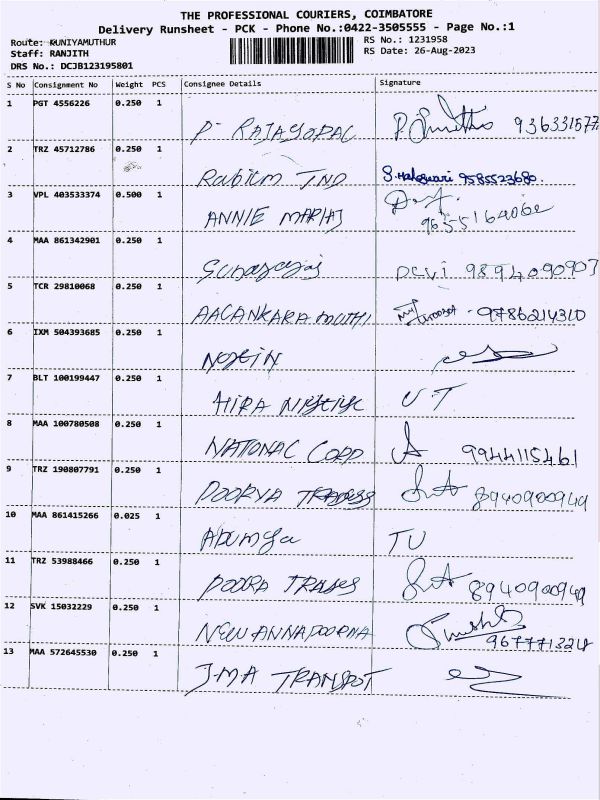 THE PROFESSIONAL COURIERS, COIMBATORE
Delivery Runsheet - PCK - Phone No.:0422-3505555 - Page No.:1
Route: KUNIYAMUTHUR RS No.: 1231958
Staff: RANJITH RS Date: 26-Aug-2023
DRS No.: DCJB123195801
S No Consignment No Weight PCS Consignee Details Signature
1 PGT 4556226 0.250 1
P. RAJAGOPAL 936331577
2 TRZ 45712786 0.250 1
TND S. 9585523680
3 VPL 403533374 0.500 1
ANNIE MARIAJ
4 MAA 861342901 0.250 1
DEVI 9894090903
5 TCR 29810068 0.250 1
AACANKARA MUTHI 9786214310
6 IXM 504393685 0.250 1
7 BLT 100199447 0.250 1
HIRA UT
8 MAA 100780508 0.250 1
NATIONAL CORP 9944115461
9 TRZ 190807791 0.250 1
POORVA TRADESS 8940900949
10 MAA 861415266 0.025 1
TU
11 TRZ 53988466 0.250 1
POORA TRADES 8940900949
12 SVK 15032229 0.250 1
NEW ANNAPOORNA 9677713218
13 MAA 572645530 0.250 1
J.M.A TRANSPOT